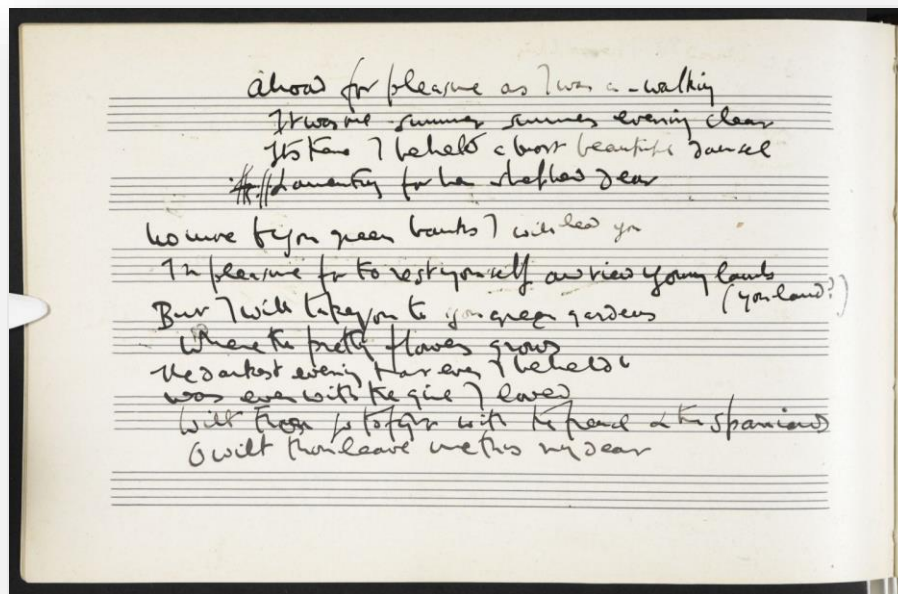 abroad for pleasure as I was a-walking
It was one summer summer evening clear
I beheld a most beautiful damsel
Lamenting for her shepherd dear
no more to yon green banks I will lead you
In pleasure for to rest yourself and view young lambs
(yon land?)
But I will take you to yon green gardens
Where the pretty flowers grows
The darkest evening that ever I beheld
was ever with the girl I loved
Wilt thou go to fight with the French & the Spaniards
O wilt thou leave me thus my dear